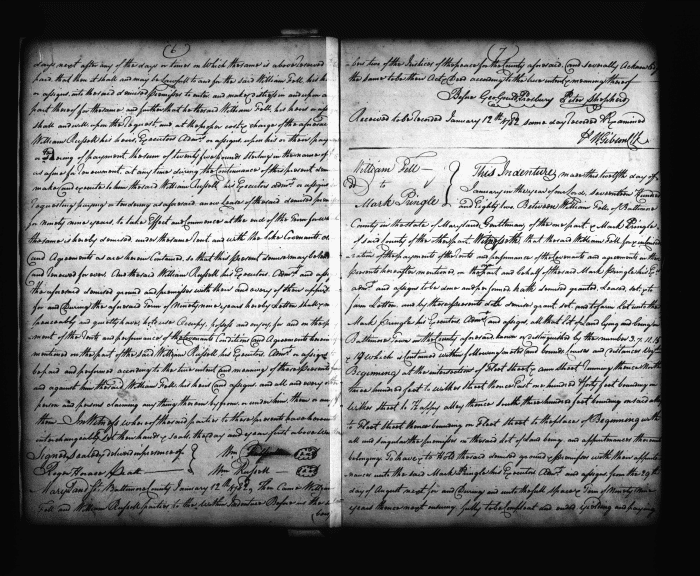 (6
days next after any of the days or times on which the same is above reserved
paid, that then it shall and may be Lawfull to and for the said William Fell, his he
or assigns into the said demised premises to enter and make distress and upon a
part thereof for the same and further that he the said William Fell, his heirs or ass
shall and will upon the request, and at the proper cost & charge of the aforesaid
William Russell his heirs, Executors Adm.rs or assigns, upon his or their paying
or of payment, the sum of twenty four pounds Sterling in the name of
as a for renewment, at any time during the Continuance of this present demise
make and execute to him the said William Russell, his Executors Adm.rs or assigns
requesting paying or tendering as aforesaid a new Lease of the said demised premi
for ninety nine years, to take Effect and Commence at the end of the Term for
the same is hereby demised under the same Rent and with the like Covenants
and Agreements as are herein Contained, so that this present demise may be
and renewed for ever. And the said William Russell his Executors Adm.rs and ass
the aforesaid demised ground and premises with these and every of their appu
for and During the aforesaid Term of Ninety nine years hereby Letten shall
peaceably and quietly have, hold use Occupy, possess and enjoy, for and on the pay
ment of the Rents and performances of the Covenants Conditions and Agreements herein
mentioned on the part of the said William Russell his Executors Adm.rs or assigns
be paid and performed according to the true intent and meaning of these presents
and against him the said William Fell, his heirs and assigns, and all and every other
person and persons claiming any thing therein by, from, or under him them or any
them. In Witness whereof the said parties to these presents have hereunto
interchangeably set their hands & seals, the day and year first above
Signed sealed & delivered in presence of
Wm Fell
Wm Russell
Maryland ss. Baltimore County January 12th 1782, Then Came William
Fell and William Russell parties to the within Indenture Before us the
7
a bove two of the Justices of the peace for the County aforesaid, and severally Acknowledged
the same to be their Act & Deed according to the true intent & meaning thereof
Before Geo Goldsmith Presbury Peter Shepherd
Received to be Recorded January 12th 1782 same day Recorded & Examined
Wm Gibson Clk
William Fell
to
Mark Pringle
This Indenture made this twelfth day of
January in the year of our Lord, seventeen Hundred
and Eighty two. Between William Fell, of Baltimore
County in the State of Maryland Gentleman, of the one part & Mark Pringle
of said County of the other part. Witnesseth, that the said William Fell for & in consid
eration of the payments of the Rents and performance of the Covenants and agreements in these
presents hereafter mentioned, on the Part and behalf of the said Mark Pringle his Ex
adm.rs and assigns to be done and performed, hath demised granted, Leased, set & to
farm Letten, and by these presents doth demise grant, set, and to farm Let unto the
Mark Pringle his Executors Adm.rs and assigns, all that Lot of Land lying and being in
Baltimore Town in the County aforesaid known or distinguished by the number 3. 7. 11. 15
& 19 which is Contained within following metes and bounds Courses and distances Viz.t
Beginning at the intersection of Fleet Street & Ann Street running thence North
three hundred feet to Wilkes Street thence East one hundred & forty feet bounding on
Wilkes Street to Happy alley thence South three hundred feet bounding on said alley
to Fleet Street thence bounding on Fleet Street to the place of Beginning with
all and singular the premises on the said lot of land being, and appurtenances thereun
belonging To have & to hold the said demised ground & premises with these appurte
nances unto the said Mark Pringle his Executors Adm.rs and assigns from the 29th
day of August next for and During and unto the full space & Term of Ninety Nine
years thence next ensuing, fully to be Compleat and ended Yielding and paying